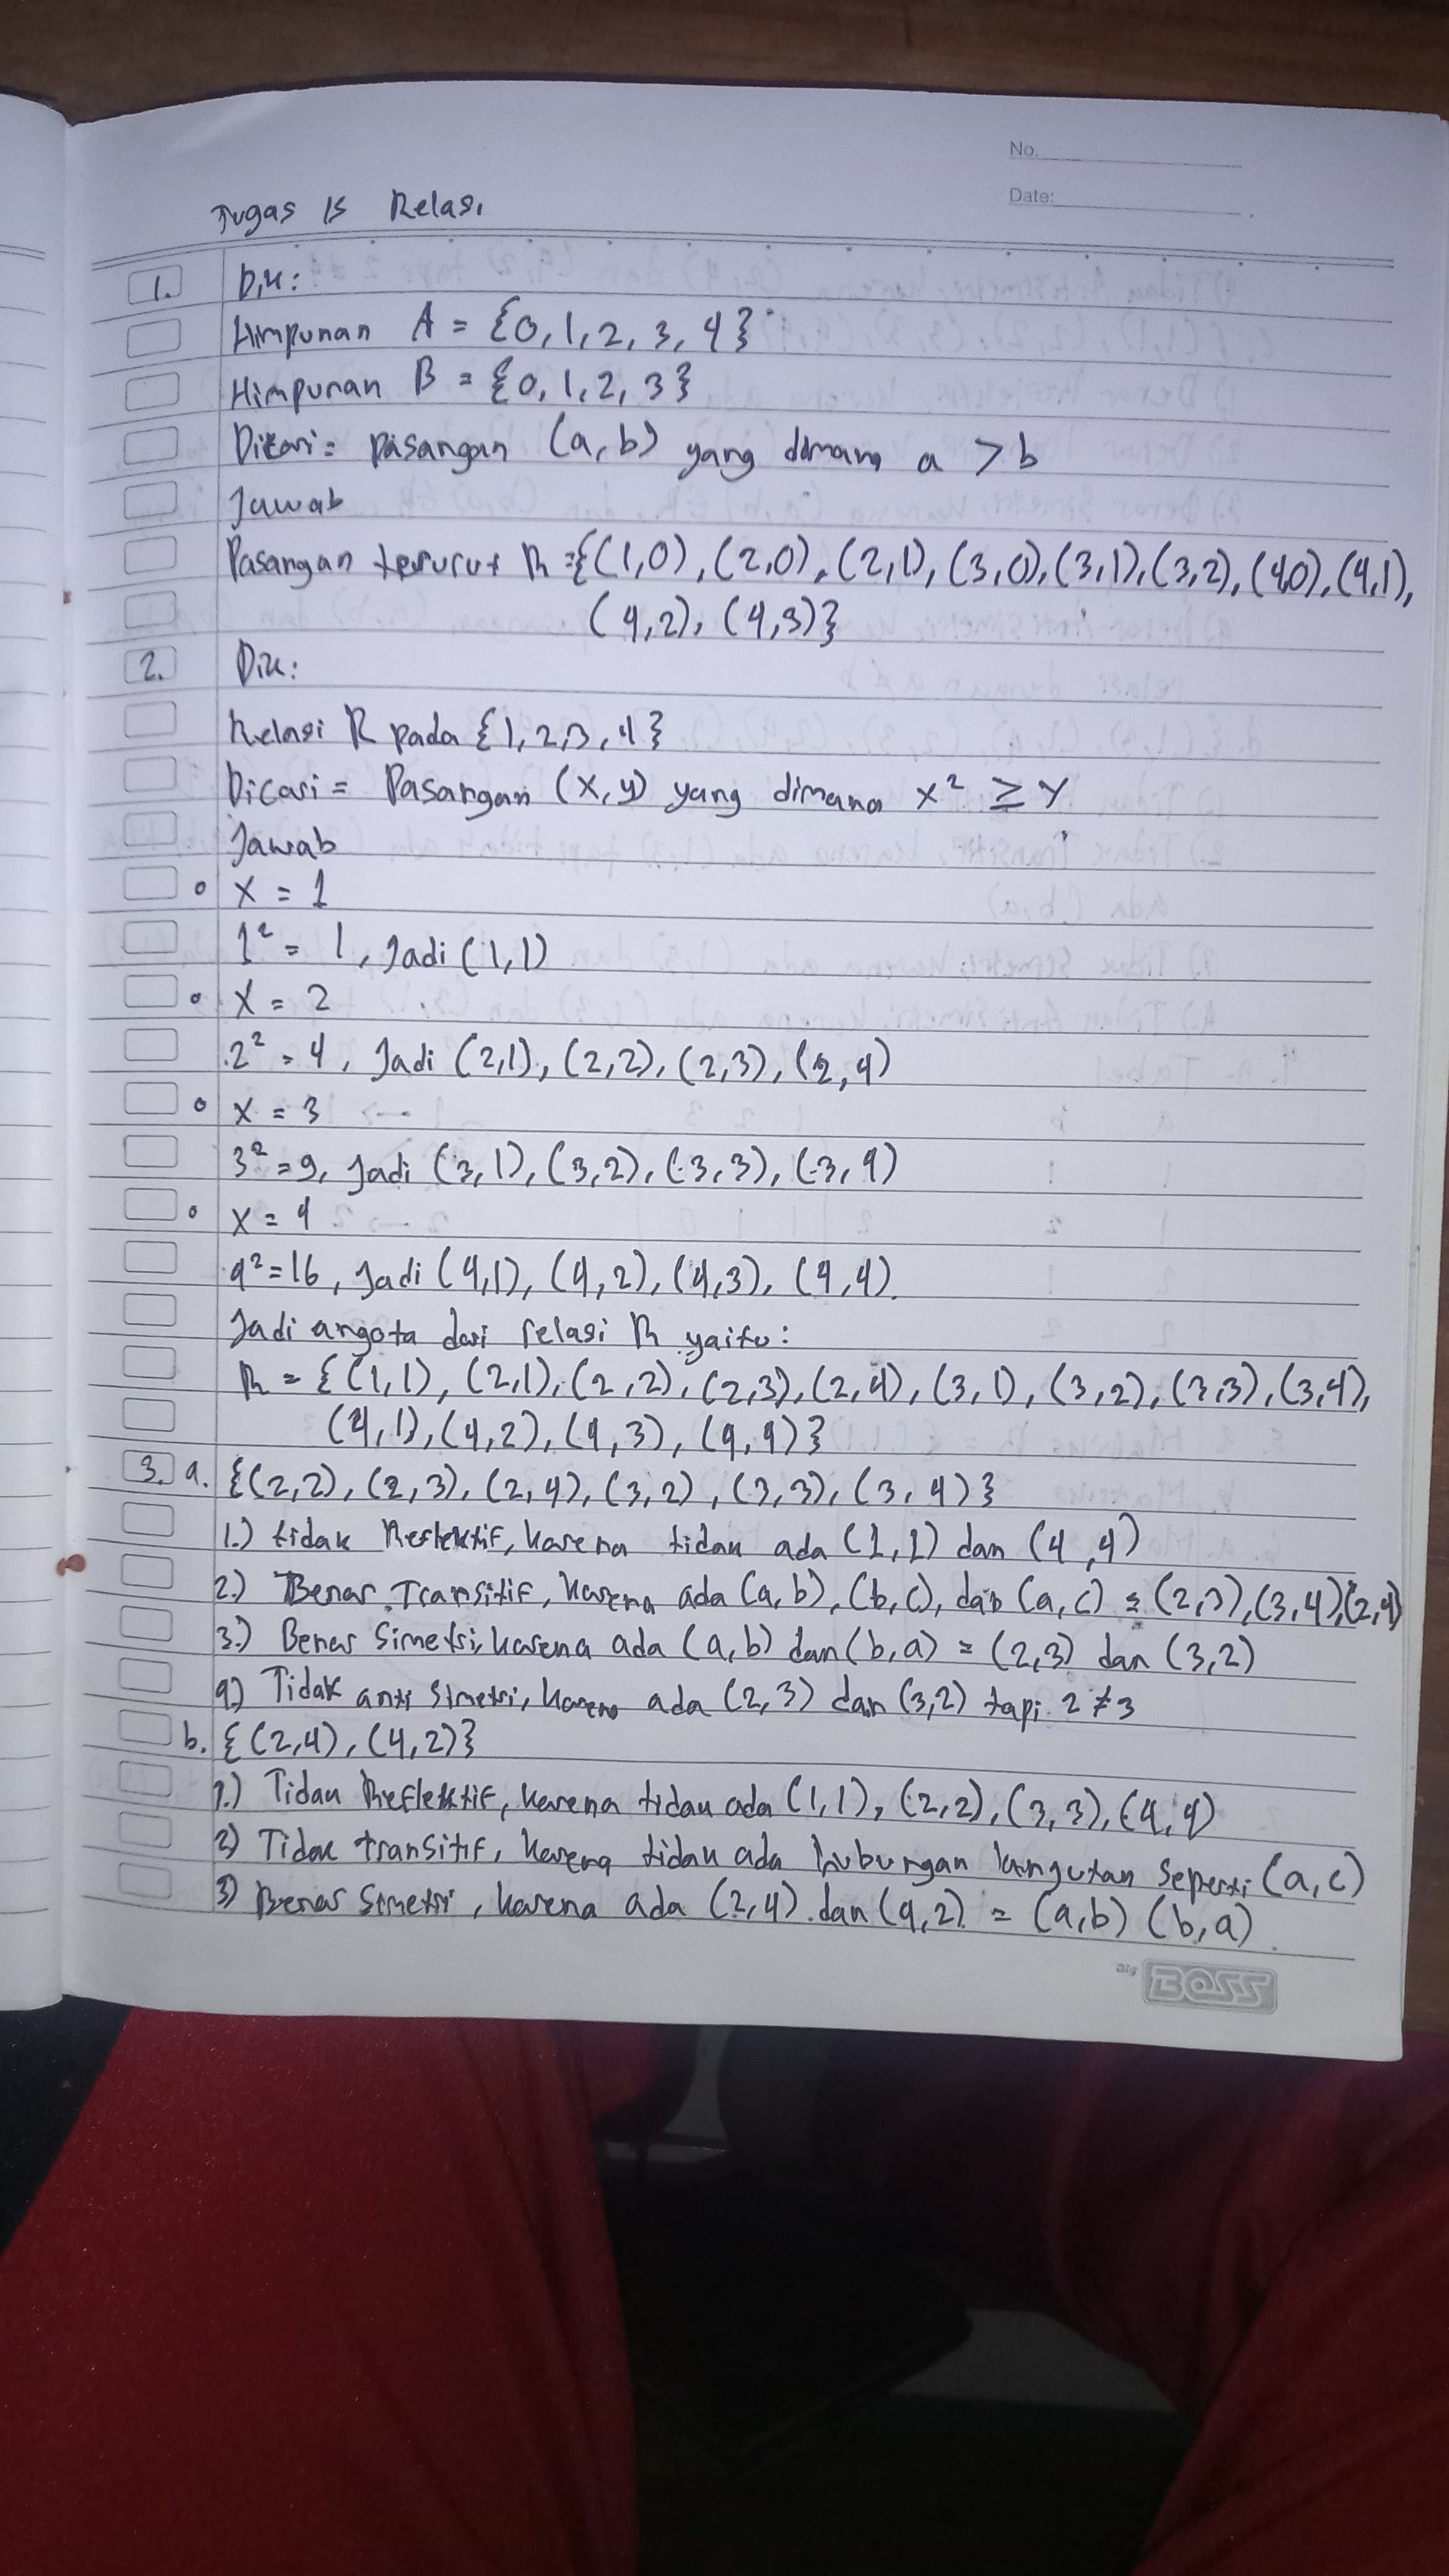 No.
Date:
Tugas 15 Relasi
1. Dik:
Himpunan A = {0, 1, 2, 3, 4}
Himpunan B = {0, 1, 2, 3}
Dicari = Pasangan (a, b) yang dimana a > b
Jawab
Pasangan terurut R = {(1,0), (2,0), (2,1), (3,0), (3,1), (3,2), (4,0), (4,1),
(4,2), (4,3)}
2. Dik:
Relasi R pada {1, 2, 3, 4}
Dicari = Pasangan (x, y) yang dimana x² ≥ y
Jawab
∘ x = 1
1² = 1, Jadi (1,1)
∘ x = 2
2² = 4, Jadi (2,1), (2,2), (2,3), (2,4)
∘ x = 3
3² = 9, Jadi (3,1), (3,2), (3,3), (3,4)
∘ x = 4
4² = 16, Jadi (4,1), (4,2), (4,3), (4,4)
Jadi angota dari relasi R yaitu:
R = {(1,1), (2,1), (2,2), (2,3), (2,4), (3,1), (3,2), (3,3), (3,4),
(4,1), (4,2), (4,3), (4,4)}
3. a. {(2,2), (2,3), (2,4), (3,2), (3,3), (3,4)}
1.) tidak Reflektif, karena tidak ada (1,1) dan (4,4)
2.) Benar Transitif, karena ada (a,b), (b,c), dan (a,c) = (2,3), (3,4), (2,4)
3.) Benar Simetri, karena ada (a,b) dan (b,a) = (2,3) dan (3,2)
4.) Tidak anti Simetri, karena ada (2,3) dan (3,2) tapi 2 ≠ 3
b. {(2,4), (4,2)}
1.) Tidak Reflektif, karena tidak ada (1,1), (2,2), (3,3), (4,4)
2) Tidak transitif, karena tidak ada hubungan langutan seperti (a,c)
3) Benar Simetri, karena ada (2,4) dan (4,2) = (a,b) (b,a)
Big BOSS